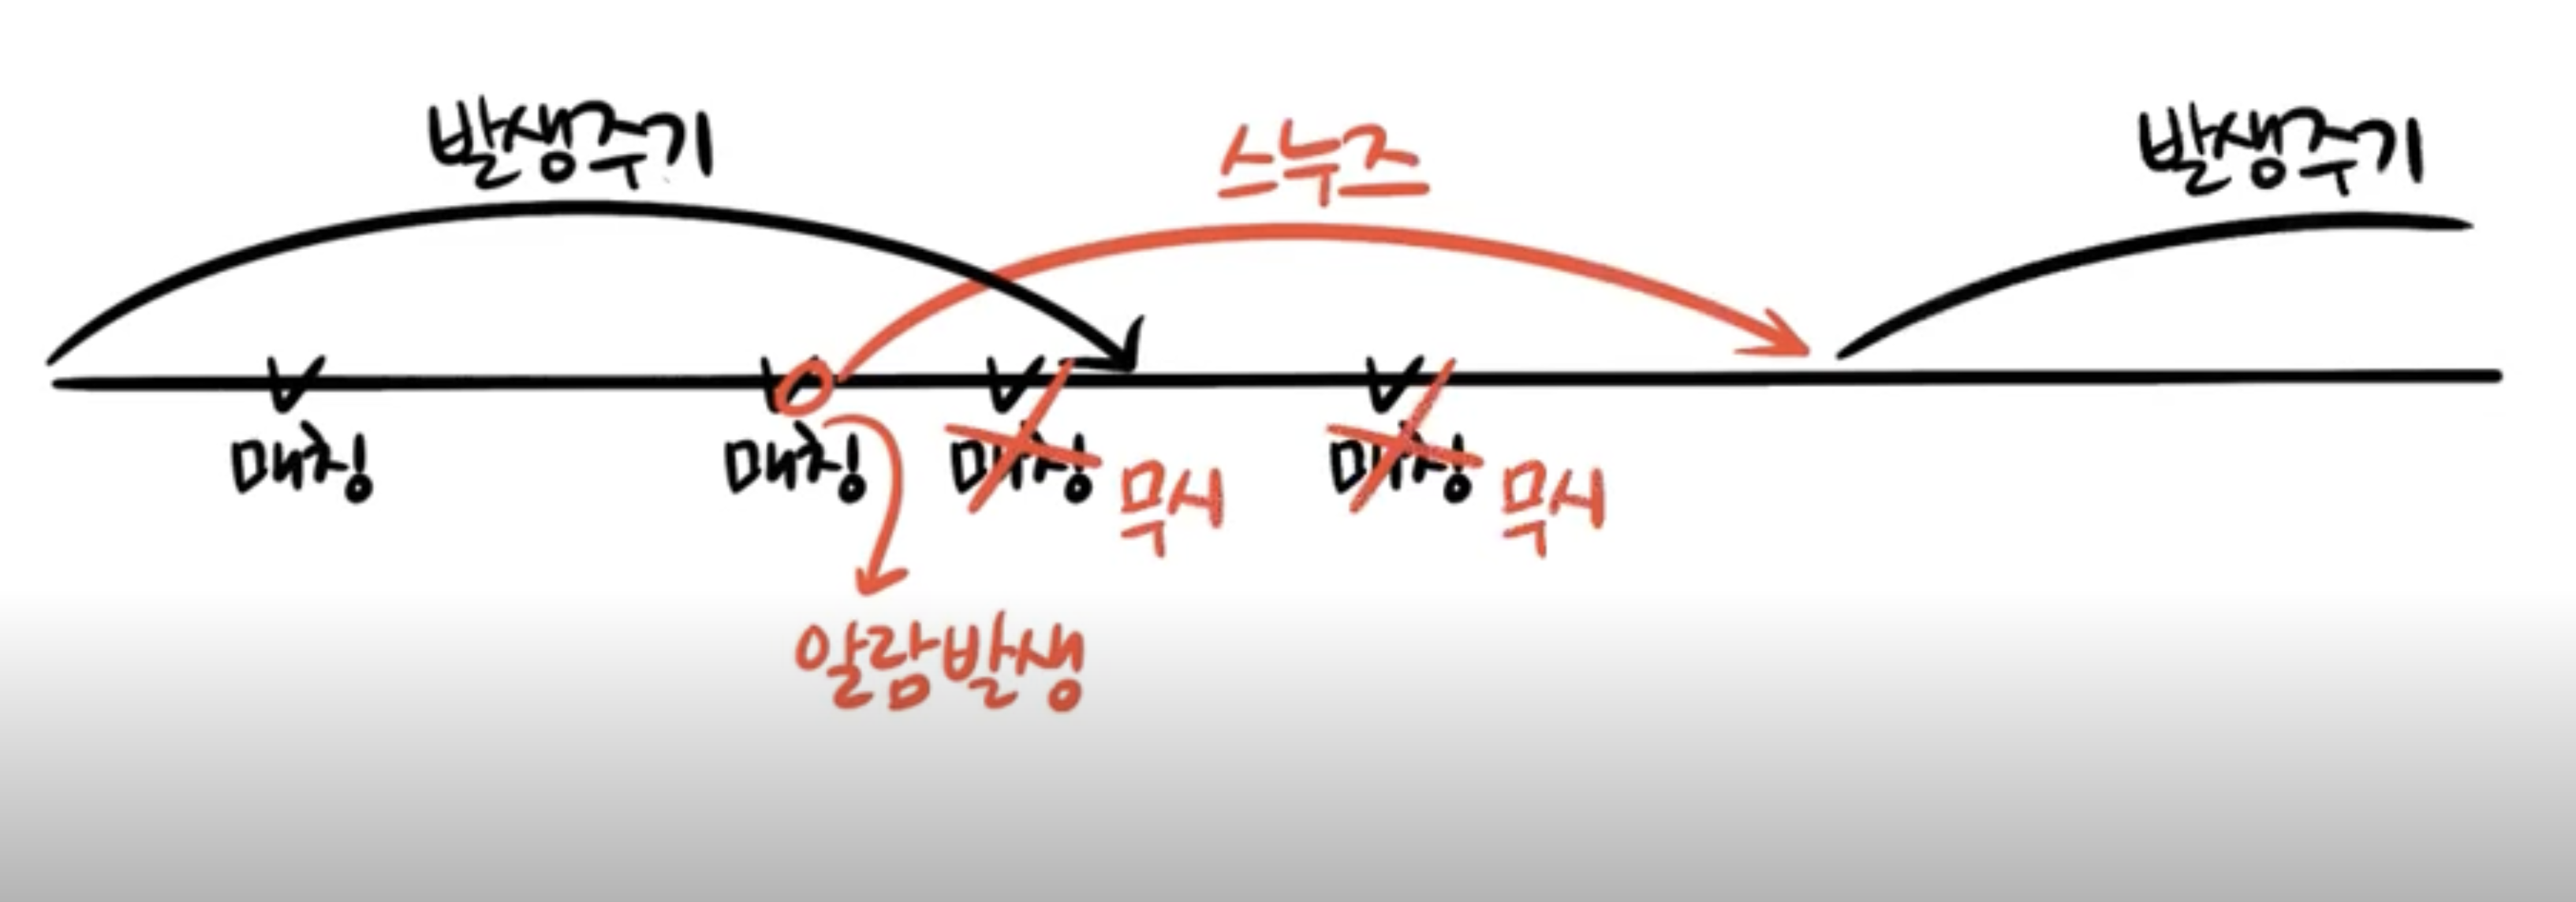 발생주기
스누즈
발생주기
매칭
매칭
매칭
무시
매칭
무시
알람발생